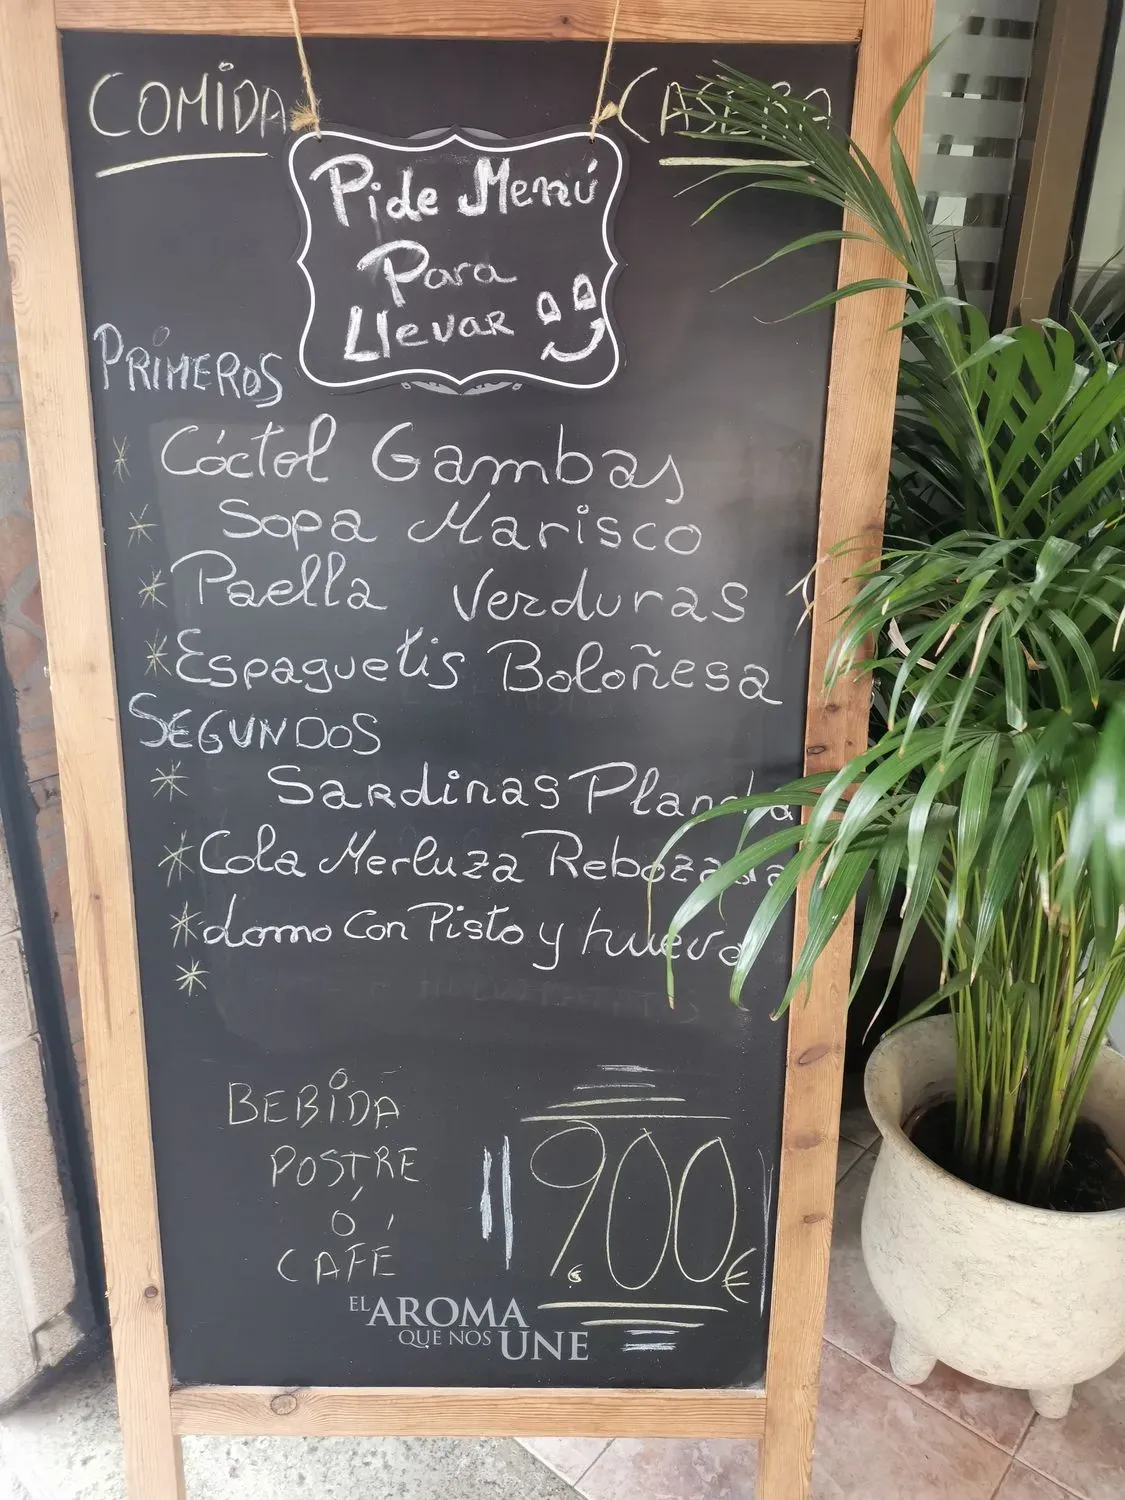 COMIDA CASERA
Pide Menú
Para
Llevar
PRIMEROS
* Cóctel Gambas
* Sopa Marisco
* Paella Verduras
* Espaguetis Boloñesa
SEGUNDOS
* Sardinas Plancha
* Cola Merluza Rebozada
* Lomo Con Pisto y huevo
*
BEBIDA
POSTRE
Ó
CAFÉ
9.00€
EL AROMA
QUE NOS UNE